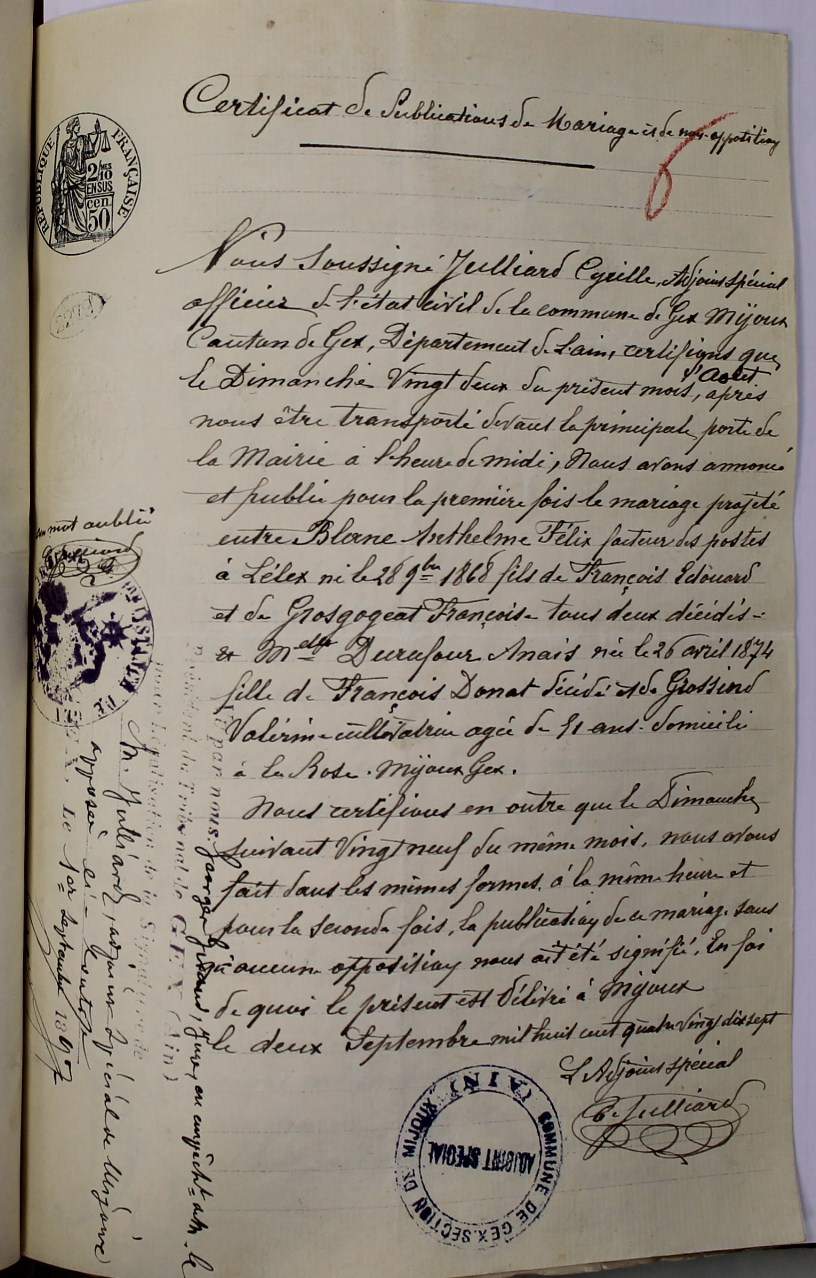 Certificat de Publications de Mariage et de non-opposition
RÉPUBLIQUE FRANÇAISE
2/10 EN SUS
50 cen
Nous soussigné Julliard Cyrille, Adjoint spécial
officier de l'état civil de la commune de Gex Mijoux
Canton de Gex, Département de l'ain, certifions que
le Dimanche Vingt deux du présent mois, d'Aout après
nous être transporté devant la principale porte de
la Mairie à l'heure de midi, Nous avons annoncé
et publié pour la première fois le mariage projeté
entre Blanc Anthelme Félix facteur des postes
à Lélex né le 28 9bre 1868 fils de François Edouard
et de Grosgogeat Françoise tous deux décédés =
& Melle Durafour Anais née le 26 avril 1874
fille de François Donat décédé et de Grossind
Valérine cultivatrice agée de 51 ans. domicilié
à la Rose. Mijoux Gex.
Nous certifions en outre que le Dimanche
suivant Vingt neuf du même mois, nous avons
fait dans les mêmes formes, à la même heure et
pour la seconde fois, la publication de ce mariage sans
qu'aucune opposition nous ait été signifié. En foi
de quoi le présent est délivré à Mijoux
le deux Septembre mil huit cent quatre vingt dix sept
L'Adjoint spécial
C. Julliard
COMMUNE DE GEX. SECTION DE MIJOUX (AIN)
ADJOINT SPECIAL
un mot oublié
par nous, Georges
Juge en empècht. du le
Président du Tribunal de GEX (Ain)
pour légalisation de la Signature de
M. Julliard, adjoint spécial de Mijoux
apposée ci-contre
GEX, Le 1er Septembre 1897